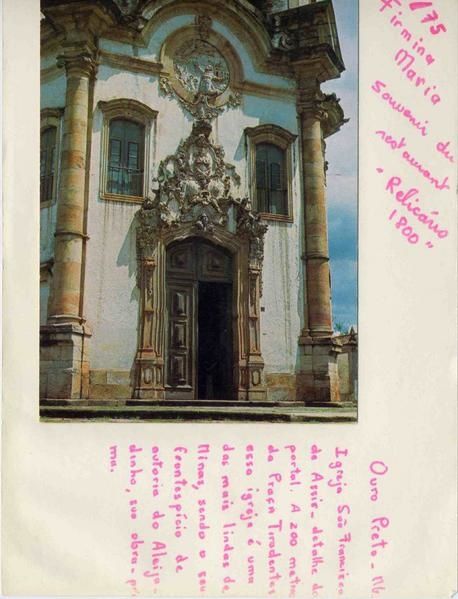 /75
Firmina
Maria
souvenir du
restaurant
"Relicário
1800"
Ouro Preto - MG
Igreja São Francisco
de Assis - detalhe do
portal. A 200 metros
da Praça Tiradentes
essa igreja é uma
das mais lindas de
Minas, sendo o seu
frontespício de
autoria do Aleija-
dinho, sua obra-pri-
ma.